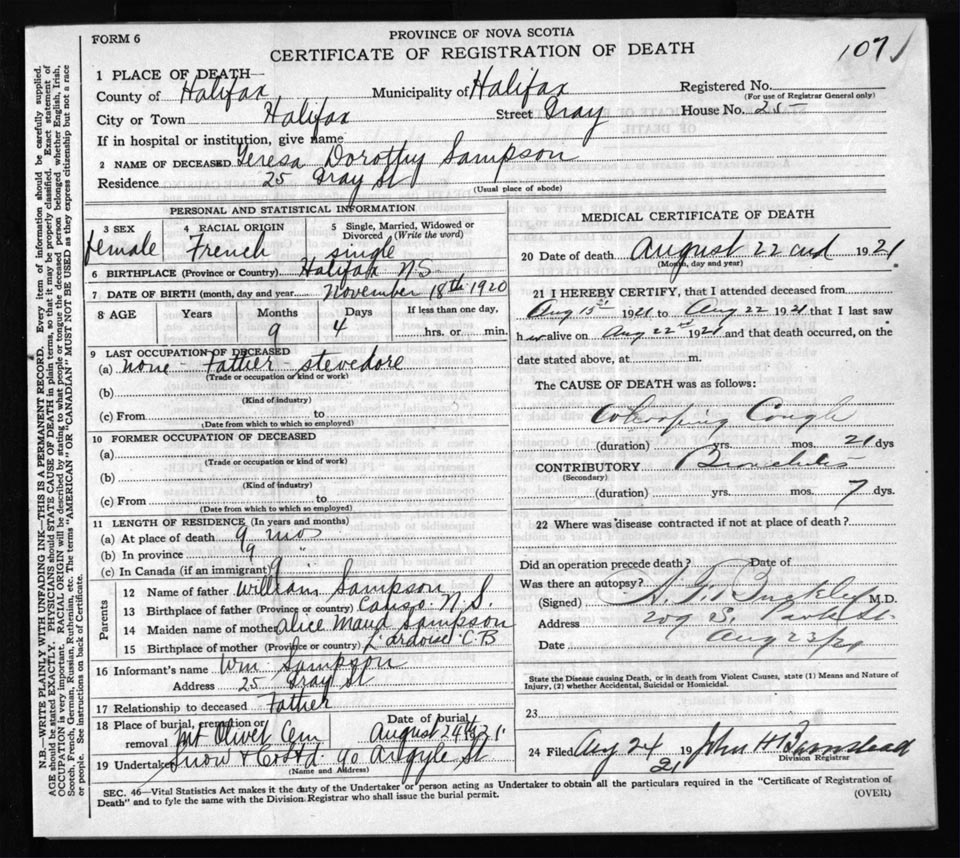 FORM 6
PROVINCE OF NOVA SCOTIA
CERTIFICATE OF REGISTRATION OF DEATH
1071
1 PLACE OF DEATH
County of Halifax Municipality of Halifax Registered No.
(For use of Registrar General only)
City or Town Halifax Street Gray House No. 25
If in hospital or institution, give name
2 NAME OF DECEASED Teresa Dorothy Sampson
Residence 25 Gray St
(Usual place of abode)
PERSONAL AND STATISTICAL INFORMATION
3 SEX female
4 RACIAL ORIGIN French
5 Single, Married, Widowed or Divorced (Write the word) single
6 BIRTHPLACE (Province or Country) Halifax N S
7 DATE OF BIRTH (month, day and year) November 18th 1920
8 AGE Years Months Days If less than one day,
9 4 hrs. or min.
9 LAST OCCUPATION OF DECEASED
(a) none - Father - stevedore
(Trade or occupation or kind or work)
(b)
(Kind of industry)
(c) From to
(Date from which to which so employed)
10 FORMER OCCUPATION OF DECEASED
(a)
(Trade or occupation or kind of work)
(b)
(Kind of industry)
(c) From to
(Date from which to which so employed)
11 LENGTH OF RESIDENCE (In years and months)
(a) At place of death 9 mos
(b) In province 9 "
(c) In Canada (if an immigrant) 9 "
Parents
12 Name of father William Sampson
13 Birthplace of father (Province or country) Canso N S
14 Maiden name of mother Alice Maud Sampson
15 Birthplace of mother (Province or country) L'ardoise C B
16 Informant's name Wm Sampson
Address 25 Gray St
17 Relationship to deceased Father
18 Place of burial, cremation or removal Mt Olivet Cem Date of burial August 24th 1921
19 Undertaker Snow & Co Ltd 90 Argyle St
(Name and Address)
MEDICAL CERTIFICATE OF DEATH
20 Date of death August 22nd 1921
(Month, day and year)
21 I HEREBY CERTIFY, that I attended deceased from
Aug 15st 1921 to Aug 22 1921 that I last saw
her alive on Aug 22nd 1921 and that death occurred, on the
date stated above, at m.
The CAUSE OF DEATH was as follows:
Whooping Cough
(duration) yrs. mos. 21 dys
CONTRIBUTORY Bronchitis
(Secondary)
(duration) yrs. mos. 7 dys.
22 Where was disease contracted if not at place of death?
Did an operation precede death? Date of
Was there an autopsy?
(Signed) A. G. Buckley M.D.
Address 209 S. Park St.
Date Aug 23/21
State the Disease causing Death, or in death from Violent Causes, state (1) Means and Nature of
Injury, (2) whether Accidental, Suicidal or Homicidal.
23
24 Filed Aug 24 1921 John H Barnstead
Division Registrar
SEC. 46—Vital Statistics Act makes it the duty of the Undertaker or person acting as Undertaker to obtain all the particulars required in the "Certificate of Registration of
Death" and to fyle the same with the Division Registrar who shall issue the burial permit.
(OVER)
N.B.—WRITE PLAINLY WITH UNFADING INK—THIS IS A PERMANENT RECORD. Every item of information should be carefully supplied.
AGE should be stated EXACTLY. PHYSICIANS should STATE CAUSE OF DEATH in plain terms, so that it may be properly classified. Exact statement of
OCCUPATION is very important. RACIAL ORIGIN will be described by stating to what people or tongue the deceased person belonged whether English, Irish,
Scotch, French, German, Russian, Ruthenian, etc. The terms "AMERICAN" OR "CANADIAN" MUST NOT BE USED as they express citizenship but not a race
or people. See instructions on back of Certificate.